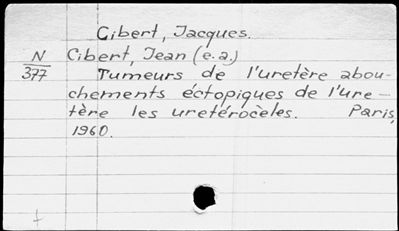 Cibert, Jacques.
N Cibert, Jean (e.a.)
377 Tumeurs de l'uretère abou-
chements éctopiques de l'ure-
tère les uretérocèles. Paris,
1960.